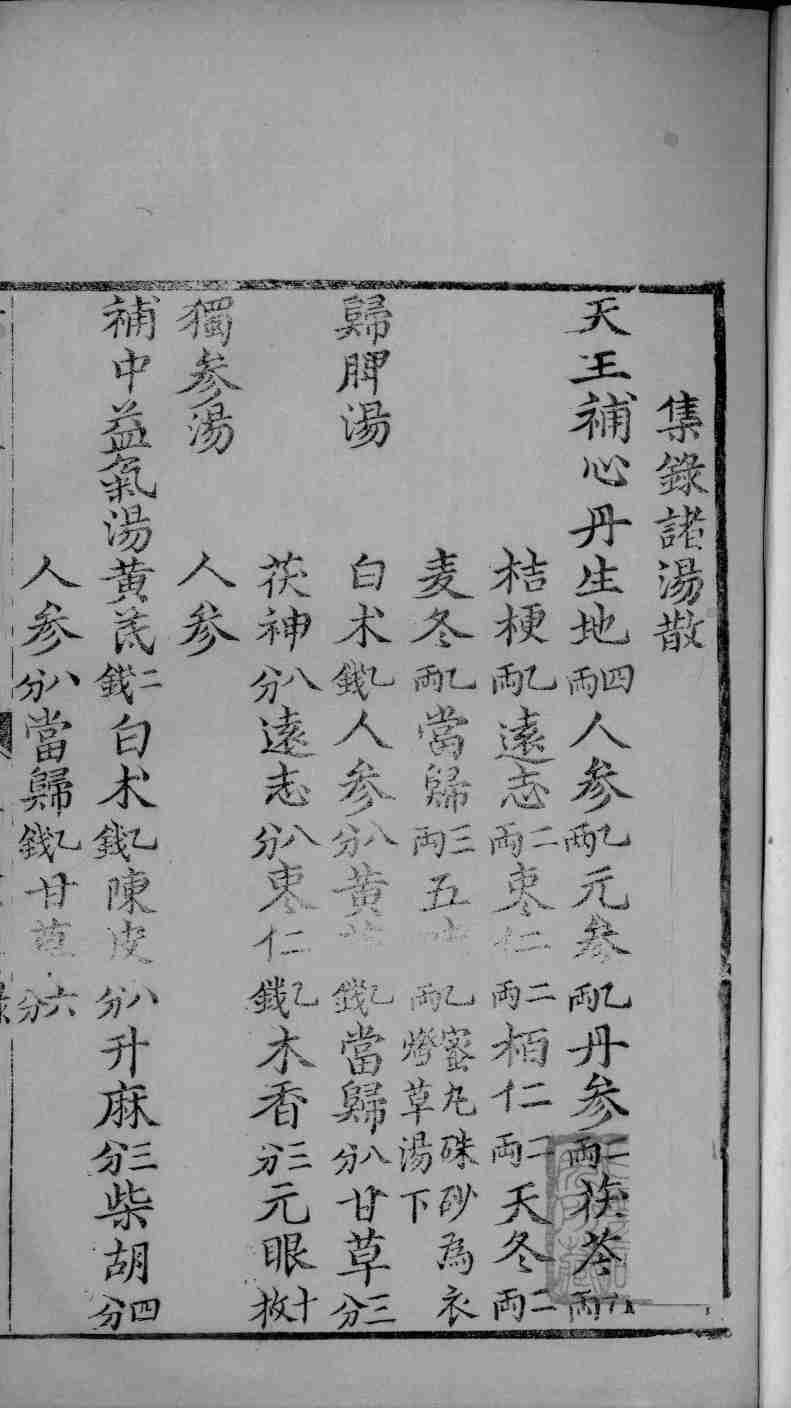 集錄諸湯散
天王補心丹生地四兩人参乙兩元参乙兩丹参二兩茯苓兩
桔梗乙兩遠志二兩枣仁二兩栢仁二兩天冬二兩
麦冬乙兩當歸三兩五乙兩蜜丸硃砂為衣燈草湯下
歸脾湯白术乙錢人参八分黄乙錢當歸八分甘草三分
茯神八分遠志八分枣仁乙錢木香三分元眼十枚
獨参湯人参
補中益氣湯黄芪二錢白术乙錢陳皮八分升麻三分柴胡四分
人参八分當歸乙錢甘草六分